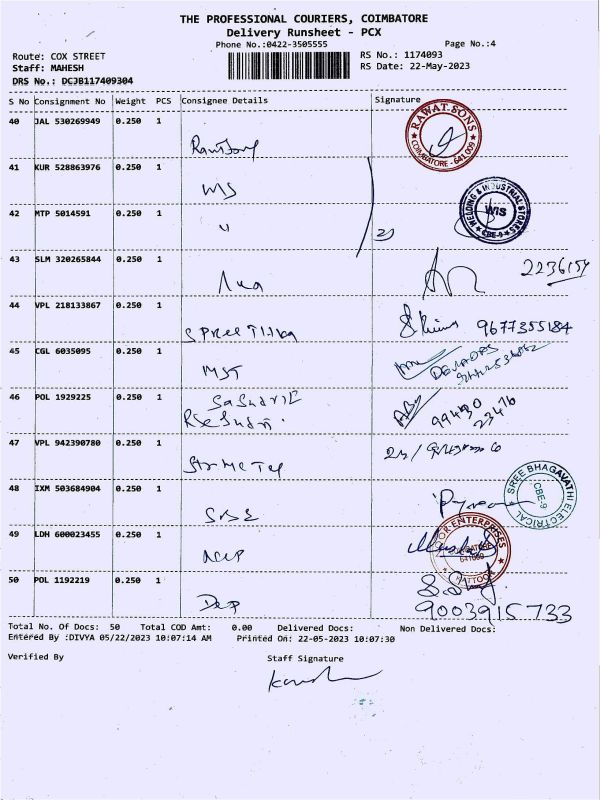 THE PROFESSIONAL COURIERS, COIMBATORE
Delivery Runsheet - PCX
Phone No.:0422-3505555 Page No.:4
Route: COX STREET RS No.: 1174093
Staff: MAHESH RS Date: 22-May-2023
DRS No.: DCJB117409304
S No Consignment No Weight PCS Consignee Details Signature
40 JAL 530269949 0.250 1
RAWAT SONS COIMBATORE - 641 009
41 KUR 528863976 0.250 1
WIS
WELDING & INDUSTRIAL STORES WIS CBE-9
42 MTP 5014591 0.250 1
"
43 SLM 320265844 0.250 1
44 VPL 218133867 0.250 1
9677355184
45 CGL 6035095 0.250 1
MST
46 POL 1929225 0.250 1
47 VPL 942390780 0.250 1
48 IXM 503684904 0.250 1
SREE BHAGAVATHI ELECTRICAL CBE-9
49 LDH 600023455 0.250 1
ENTERPRISES
50 POL 1192219 0.250 1
9003915733
Total No. Of Docs: 50 Total COD Amt: 0.00 Delivered Docs: Non Delivered Docs:
Entered By :DIVYA 05/22/2023 10:07:14 AM Printed On: 22-05-2023 10:07:30
Verified By Staff Signature